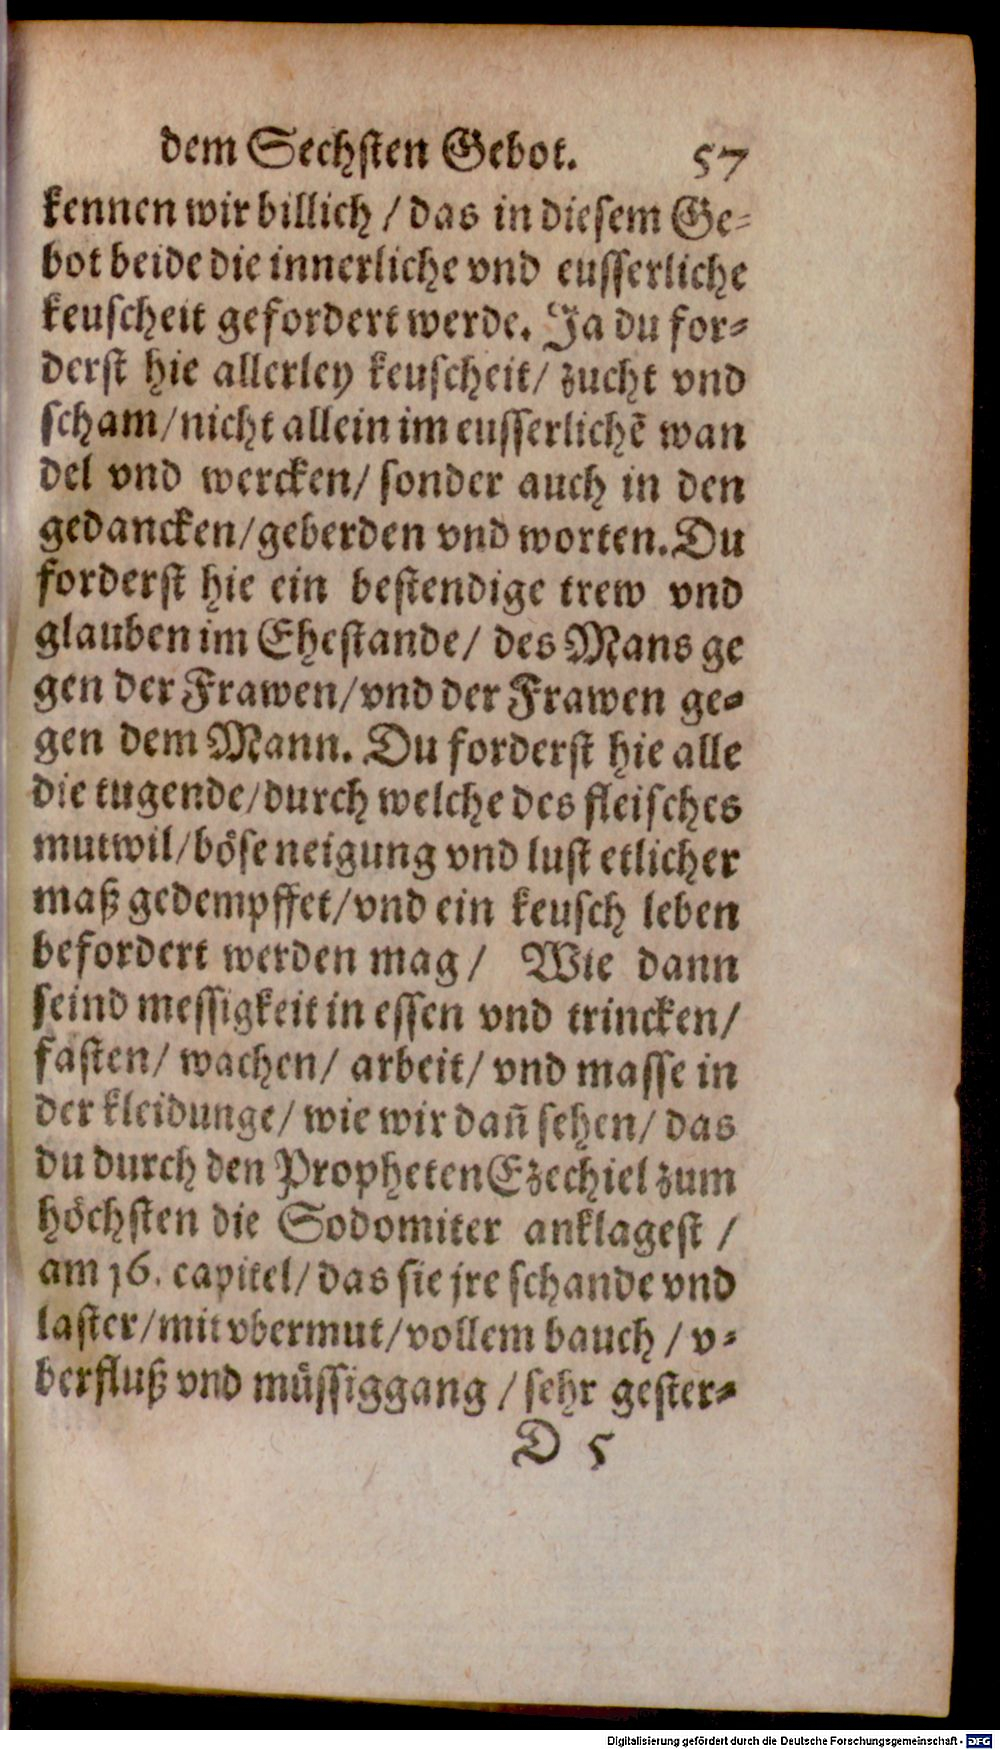 dem Sechsten Gebot. 57
kennen wir billich / das in diesem Ge-
bot beide die innerliche vnd eusserliche
keuscheit gefordert werde. Ja du for-
derst hie allerley keuscheit/ zucht vnd
scham/nicht allein im eusserlichẽ wan
del vnd wercken/ sonder auch in den
gedancken/geberden vnd worten. Du
forderst hie ein bestendige trew vnd
glauben im Ehestande/ des Mans ge
gen der Frawen/vnd der Frawen ge-
gen dem Mann. Du forderst hie alle
die tugende/durch welche des fleisches
mutwil/böse neigung vnd lust etlicher
maß gedempffet/vnd ein keusch leben
befordert werden mag / Wie dann
seind messigkeit in essen vnd trincken/
fasten/ wachen/ arbeit/ vnd masse in
der kleidunge/ wie wir dañ sehen/ das
du durch den Propheten Ezechiel zum
höchsten die Sodomiter anklagest /
am 16. capitel/ das sie jre schande vnd
laster/mit vbermut/vollem bauch / v-
berfluß vnd müssiggang / sehr gester-
D 5
Digitalisierung gefördert durch die Deutsche Forschungsgemeinschaft - DFG